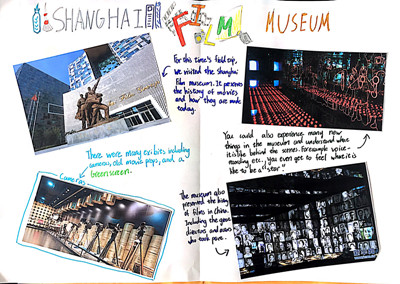 SHANGHAI FILM MUSEUM
For this time's field trip,
we visited the Shanghai
Film museum. It preserves
the history of movies
and how they are made
today.
There were many exibits including
cameras, old movie props, and a
Green screen.
Cameras
You could also experience many new
things in the museum and understand what
it is like behind the scenes. For example voice-
recording etc. you even get to feel what it is
like to be a "star".
The museum also
presented the history
of films in china.
Including the great
directors and actors
who took part.